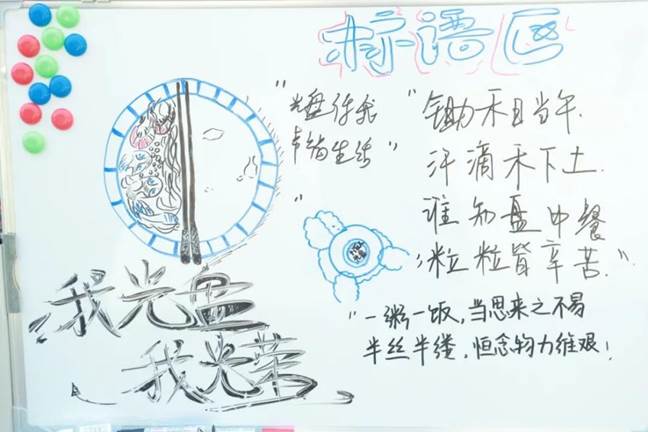 标语区
"光盘行动
节俭生活"
"锄禾日当午.
汗滴禾下土.
谁知盘中餐
粒粒皆辛苦."
我光盘
我光荣
"一粥一饭,当思来之不易
半丝半缕,恒念物力维艰!